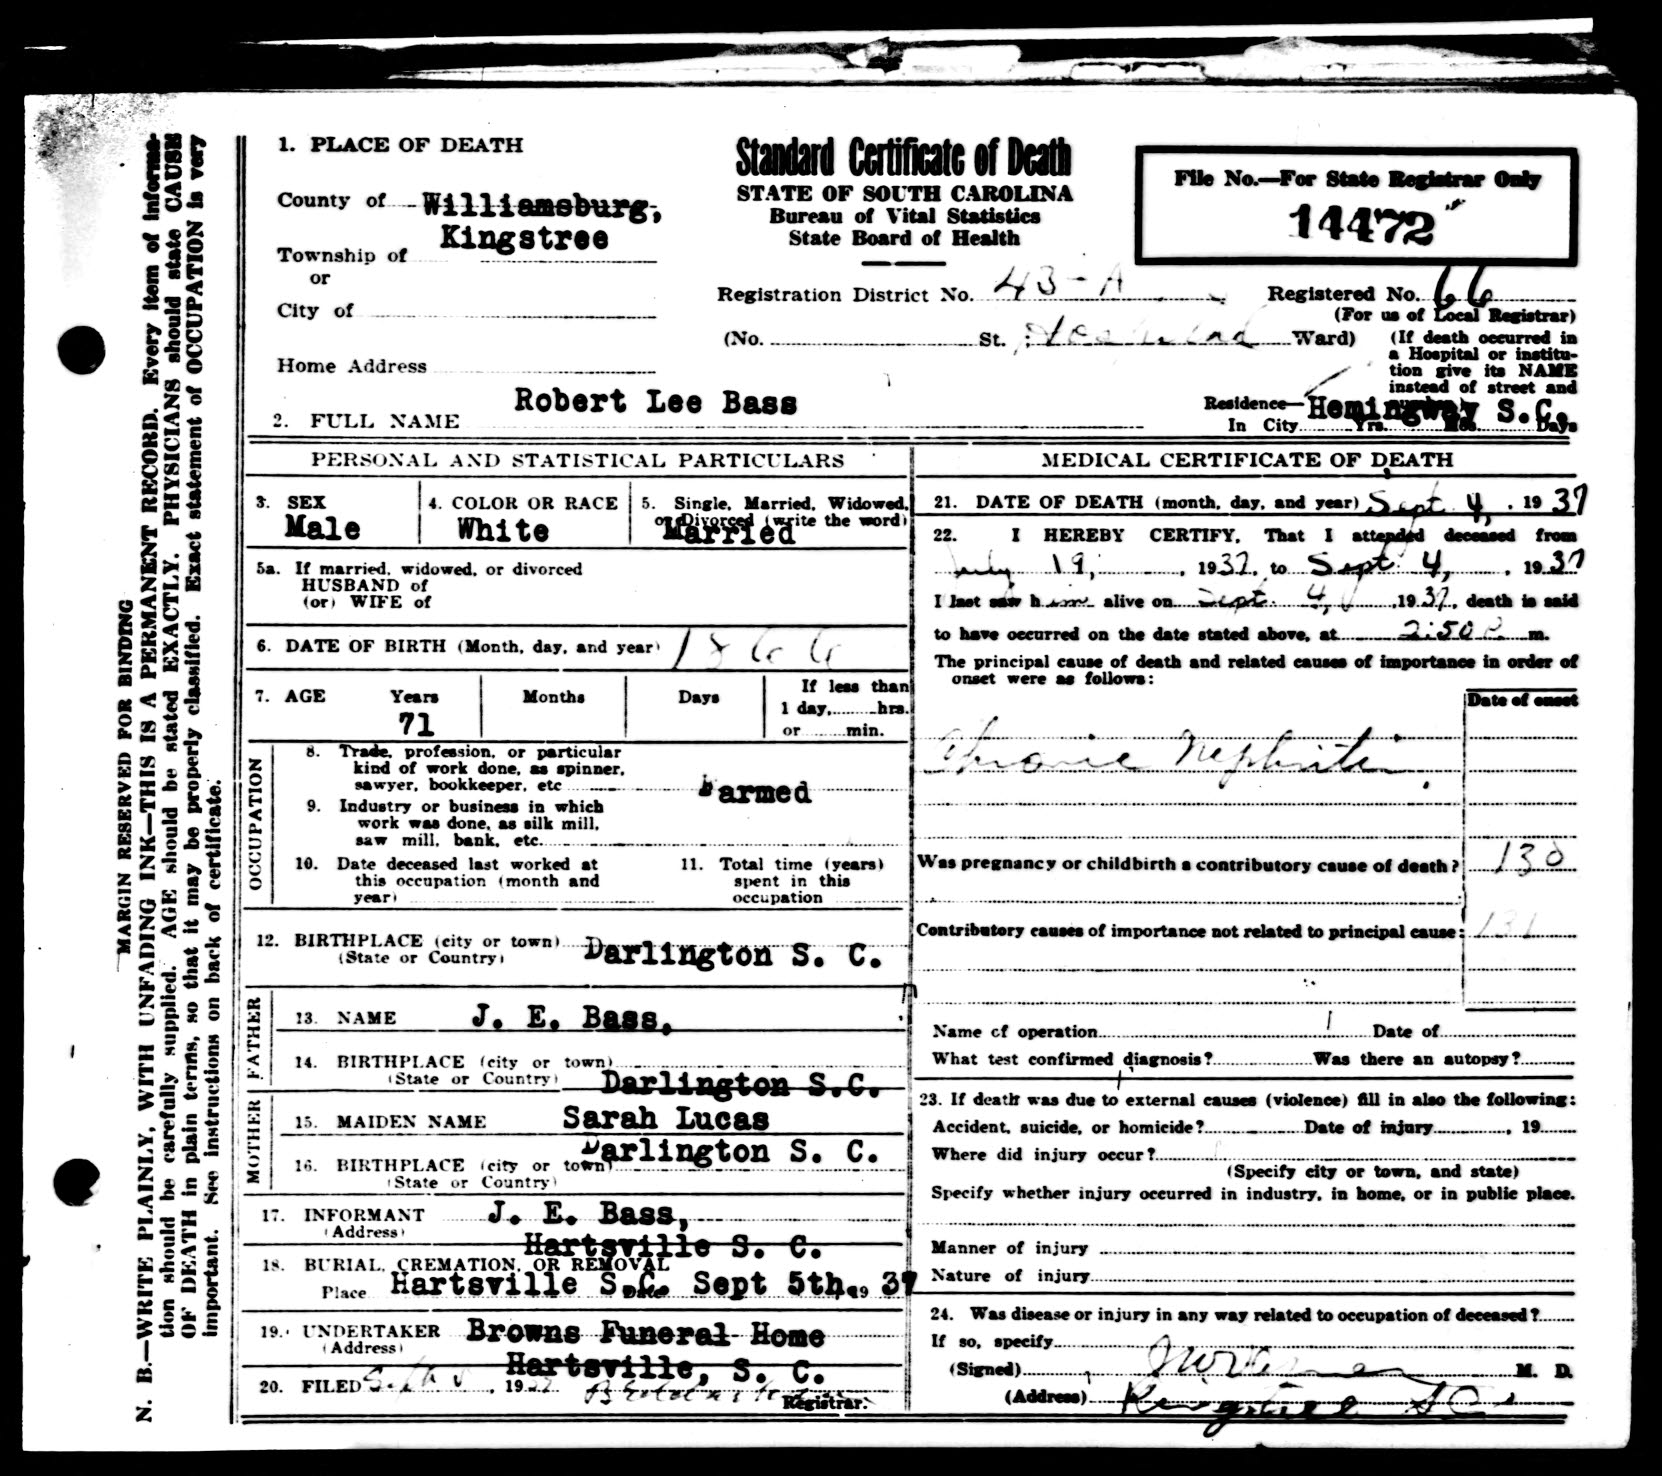 1. PLACE OF DEATH
County of Williamsburg,
Township of Kingstree
or
City of
Home Address
2. FULL NAME Robert Lee Bass
Standard Certificate of Death
STATE OF SOUTH CAROLINA
Bureau of Vital Statistics
State Board of Health
File No.—For State Registrar Only
14472
Registration District No. 43-A
Registered No. 66
(For us of Local Registrar)
(No. St. Ward)
(If death occurred in
a Hospital or institu-
tion give its NAME
instead of street and
Residence— Hemingway S.C.
In City Yrs. Mos. Days
PERSONAL AND STATISTICAL PARTICULARS
3. SEX
Male
4. COLOR OR RACE
White
5. Single, Married, Widowed,
or Divorced (write the word)
Married
5a. If married, widowed, or divorced
HUSBAND of
(or) WIFE of
6. DATE OF BIRTH (Month, day, and year) 1866
7. AGE Years Months Days
71
If less than
1 day, hrs.
or min.
OCCUPATION
8. Trade, profession, or particular
kind of work done, as spinner,
sawyer, bookkeeper, etc
Farmed
9. Industry or business in which
work was done, as silk mill,
saw mill, bank, etc.
10. Date deceased last worked at
this occupation (month and
year)
11. Total time (years)
spent in this
occupation
12. BIRTHPLACE (city or town) Darlington S. C.
(State or Country)
FATHER
13. NAME J. E. Bass,
14. BIRTHPLACE (city or town)
(State or Country) Darlington S.C.
MOTHER
15. MAIDEN NAME Sarah Lucas
16. BIRTHPLACE (city or town) Darlington S. C.
(State or Country)
17. INFORMANT J. E. Bass,
(Address) Hartsville S. C.
18. BURIAL, CREMATION, OR REMOVAL
Place Hartsville S.C. Date Sept 5th, 19 37
19. UNDERTAKER Browns Funeral Home
(Address) Hartsville, S. C.
20. FILED Sept 5, 1937
Registrar.
MEDICAL CERTIFICATE OF DEATH
21. DATE OF DEATH (month, day, and year) Sept. 4, 1937
22. I HEREBY CERTIFY, That I attended deceased from
July 19, 1937, to Sept 4, 1937
I last saw him alive on Sept. 4, 1937, death is said
to have occurred on the date stated above, at 2:50 P. m.
The principal cause of death and related causes of importance in order of
onset were as follows:
Date of onset
Chronic Nephritis
Was pregnancy or childbirth a contributory cause of death? 130
Contributory causes of importance not related to principal cause: 131
Name of operation Date of
What test confirmed diagnosis? Was there an autopsy?
23. If death was due to external causes (violence) fill in also the following:
Accident, suicide, or homicide? Date of injury , 19
Where did injury occur?
(Specify city or town, and state)
Specify whether injury occurred in industry, in home, or in public place.
Manner of injury
Nature of injury
24. Was disease or injury in any way related to occupation of deceased?
If so, specify
(Signed) M. D.
(Address) Kingstree SC
MARGIN RESERVED FOR BINDING
N. B.—WRITE PLAINLY, WITH UNFADING INK—THIS IS A PERMANENT RECORD. Every item of informa-
tion should be carefully supplied. AGE should be stated EXACTLY. PHYSICIANS should state CAUSE
OF DEATH in plain terms, so that it may be properly classified. Exact statement of OCCUPATION is very
important. See instructions on back of certificate.